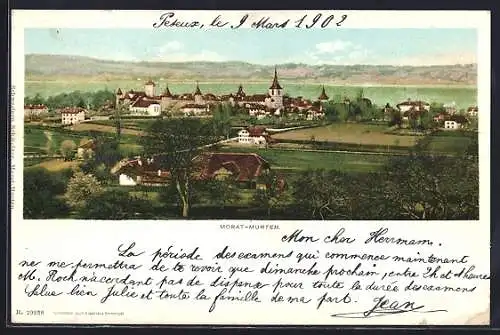 Peseux, le 9 Mars 1902
MORAT-MURTEN.
Mon cher Herrmann.
La période des examens qui commence maintenant
ne me permettra de te revoir que dimanche prochain, entre 2h et 4 heures
M. Roch n'accordant pas de dispense pour toute la durée des examens
Salue bien Julie et toute la famille de ma part. Jean